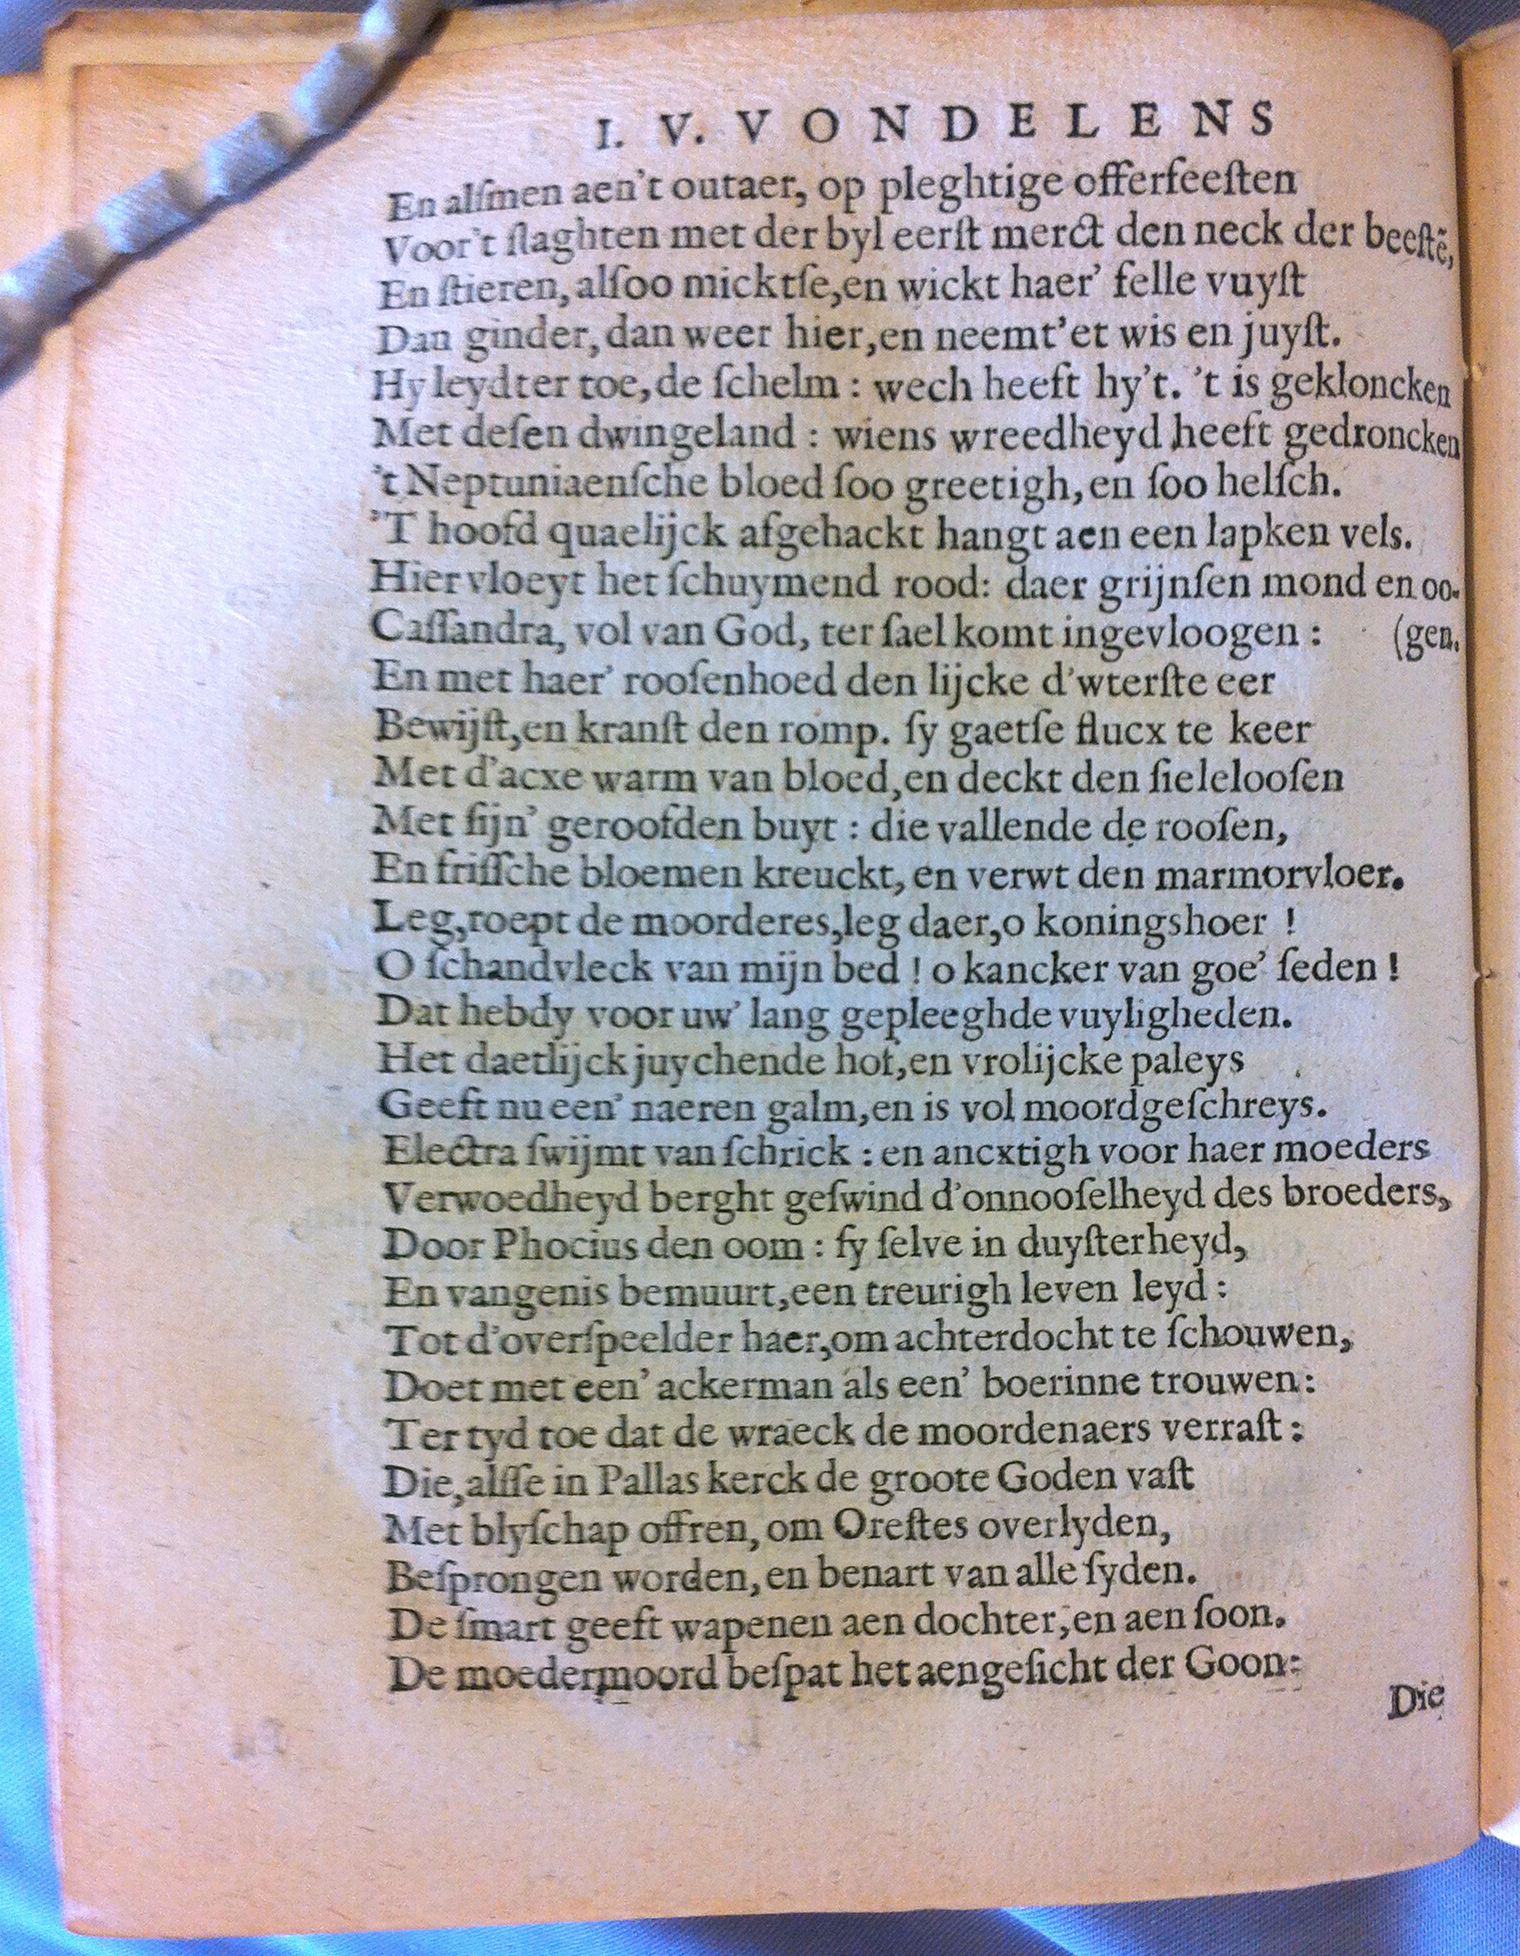 I. V. VONDELENS
En alſmen aen't outaer, op pleghtige offerfeeſten
Voor't ſlaghten met der byl eerſt merct den neck der beeſtē,
En ſtieren, alſoo micktſe, en wickt haer' felle vuyſt
Dan ginder, dan weer hier, en neemt'et wis en juyſt.
Hy leydter toe, de ſchelm : wech heeft hy't. 't is gekloncken
Met deſen dwingeland : wiens wreedheyd heeft gedroncken
't Neptuniaenſche bloed ſoo greetigh, en ſoo helſch.
'T hoofd quaelijck afgehackt hangt aen een lapken vels.
Hier vloeyt het ſchuymend rood: daer grijnſen mond en oo-
Caſſandra, vol van God, ter ſael komt ingevloogen : (gen.
En met haer' rooſenhoed den lijcke d'wterſte eer
Bewijſt, en kranſt den romp. ſy gaetſe flucx te keer
Met d'acxe warm van bloed, en deckt den ſieleloofen
Met ſijn' geroofden buyt : die vallende de rooſen,
En friſſche bloemen kreuckt, en verwt den marmorvloer.
Leg, roept de moorderes, leg daer, o koningshoer !
O ſchandvleck van mijn bed ! o kancker van goe' ſeden !
Dat hebdy voor uw' lang gepleeghde vuyligheden.
Het daetlijck juychende hof, en vrolijcke paleys
Geeft nu een' naeren galm, en is vol moordgeſchreys.
Electra ſwijmt van ſchrick : en ancxtigh voor haer moeders
Verwoedheyd berght geſwind d'onnooſelheyd des broeders,
Door Phocius den oom : ſy ſelve in duyſterheyd,
En vangenis bemuurt, een treurigh leven leyd :
Tot d'overſpeelder haer, om achterdocht te ſchouwen,
Doet met een' ackerman als een' boerinne trouwen:
Ter tyd toe dat de wraeck de moordenaers verraſt :
Die, alſſe in Pallas kerck de groote Goden vaſt
Met blyſchap offren, om Oreſtes overlyden,
Beſprongen worden, en benart van alle ſyden.
De ſmart geeft wapenen aen dochter, en aen ſoon.
De moedermoord beſpat het aengeſicht der Goon:
Die